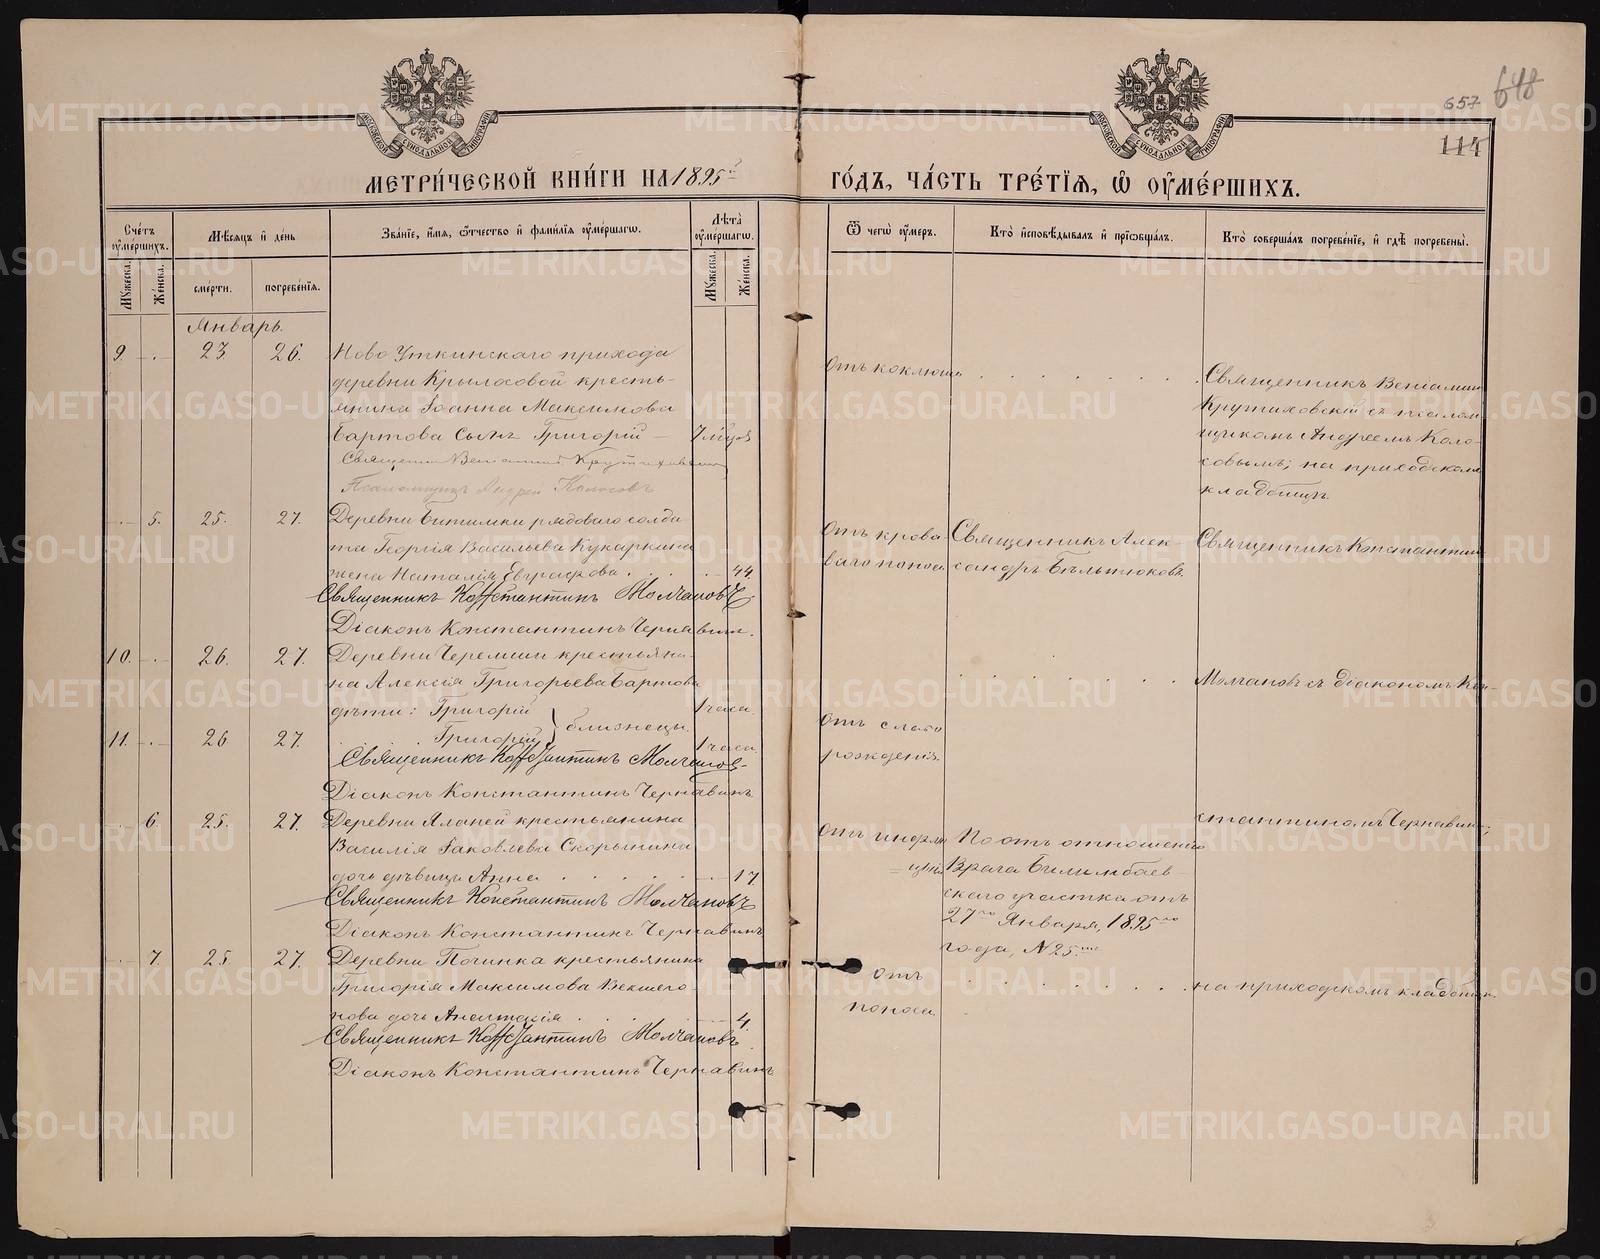 657 648
114
МЕТРИ́ЧЕСКОЙ КНИ́ГИ НА 1895й ГО́ДЪ, ЧА́СТЬ ТРЕ́ТІѦ, Ѽ ОУМЕ́РШИХЪ.
Сче́тъ оуме́ршихъ.
Мꙋжеска.
Же́нска.
Мѣсѧцъ и҆ де́нь
сме́рти.
погребе́нїѧ.
Зва́нїе, и҆́мѧ, ѻ҆́тчество и҆ фами́лїѧ оуме́ршагѡ.
Лѣта̀ оуме́ршагѡ.
Мꙋжеска.
Же́нска.
Ѿ чегѡ̀ оу́меръ.
Кто̀ и҆сповѣ́дывалъ и҆ прїѡбща́лъ.
Кто̀ соверша́лъ погребе́нїе, и҆ гдѣ̀ погребены̀.
Январь.
9. 23 26. Ново Уткинскаго прихода
деревни Крылосовой кресть-
янина Іоанна Максимова
Бартова сынъ Григорій — 7 м҃цов
Священникъ Веніаминъ Крутиховскій
Псаломщикъ Андрей Колосовъ
Отъ коклюша
Священникъ Веніамин
Крутиховскій съ псалом
щикомъ Андреемъ Коло-
совымъ; на приходском
кладбищѣ.
5. 25. 27. Деревни Битимки рядоваго солда
та Георгія Васильева Кукаркина
жена Наталія Евграфова 44.
Священникъ Константинъ Молчановъ.
Діаконъ Константинъ Чернавинъ.
Отъ крова-
ваго поноса
Священникъ Алек-
сандръ Бѣльтюковъ.
Священникъ Константин
10. 26. 27. Деревни Черемши крестьяни-
на Алексія Григорьева Бартова
дѣти: Григорій 1 часа.
близнецы.
11. 26 27. Григорій 1 часа.
Священникъ Константинъ Молчановъ
Діаконъ Константинъ Чернавинъ
Отъ слабо
рожденія.
Молчановъ съ діакономъ Кон-
6. 25. 27. Деревни
крестьянина
Василія Іаковлева Скорынина
дочь дѣвица Анна 17.
Священникъ Константинъ Молчановъ
Діаконъ Константинъ Чернавинъ
По отъ отношенію
Врача Билимбаев-
скаго участка отъ
27го Января, 1895го
года, №25.
стантиномъ Чернавин;
7. 25. 27. Деревни Починка крестьянина
Григорія Максимова
дочь Анастасія 4.
Священникъ Константинъ Молчановъ.
Діаконъ Константинъ Чернавинъ
отъ
поноса.
на приходскомъ кладбищѣ.